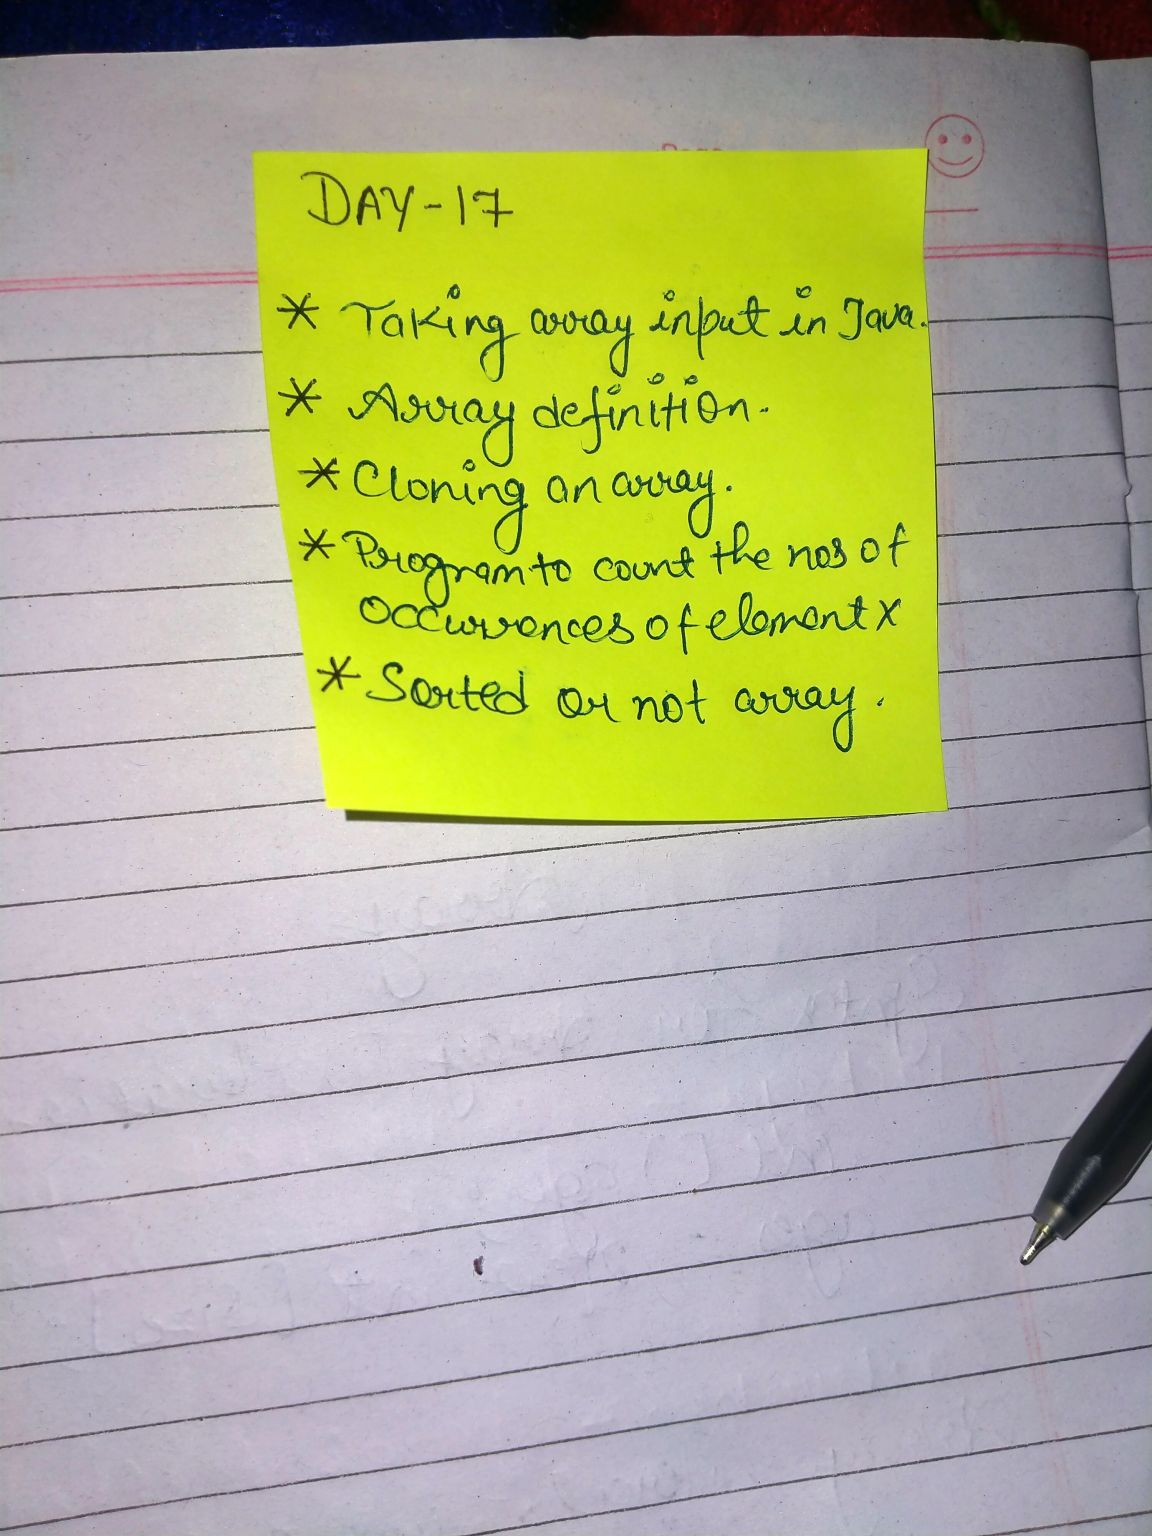 DAY-17
* Taking array input in Java.
* Array definition.
* Cloning an array.
* Program to count the nos of
occurrences of element x
* Sorted or not array.